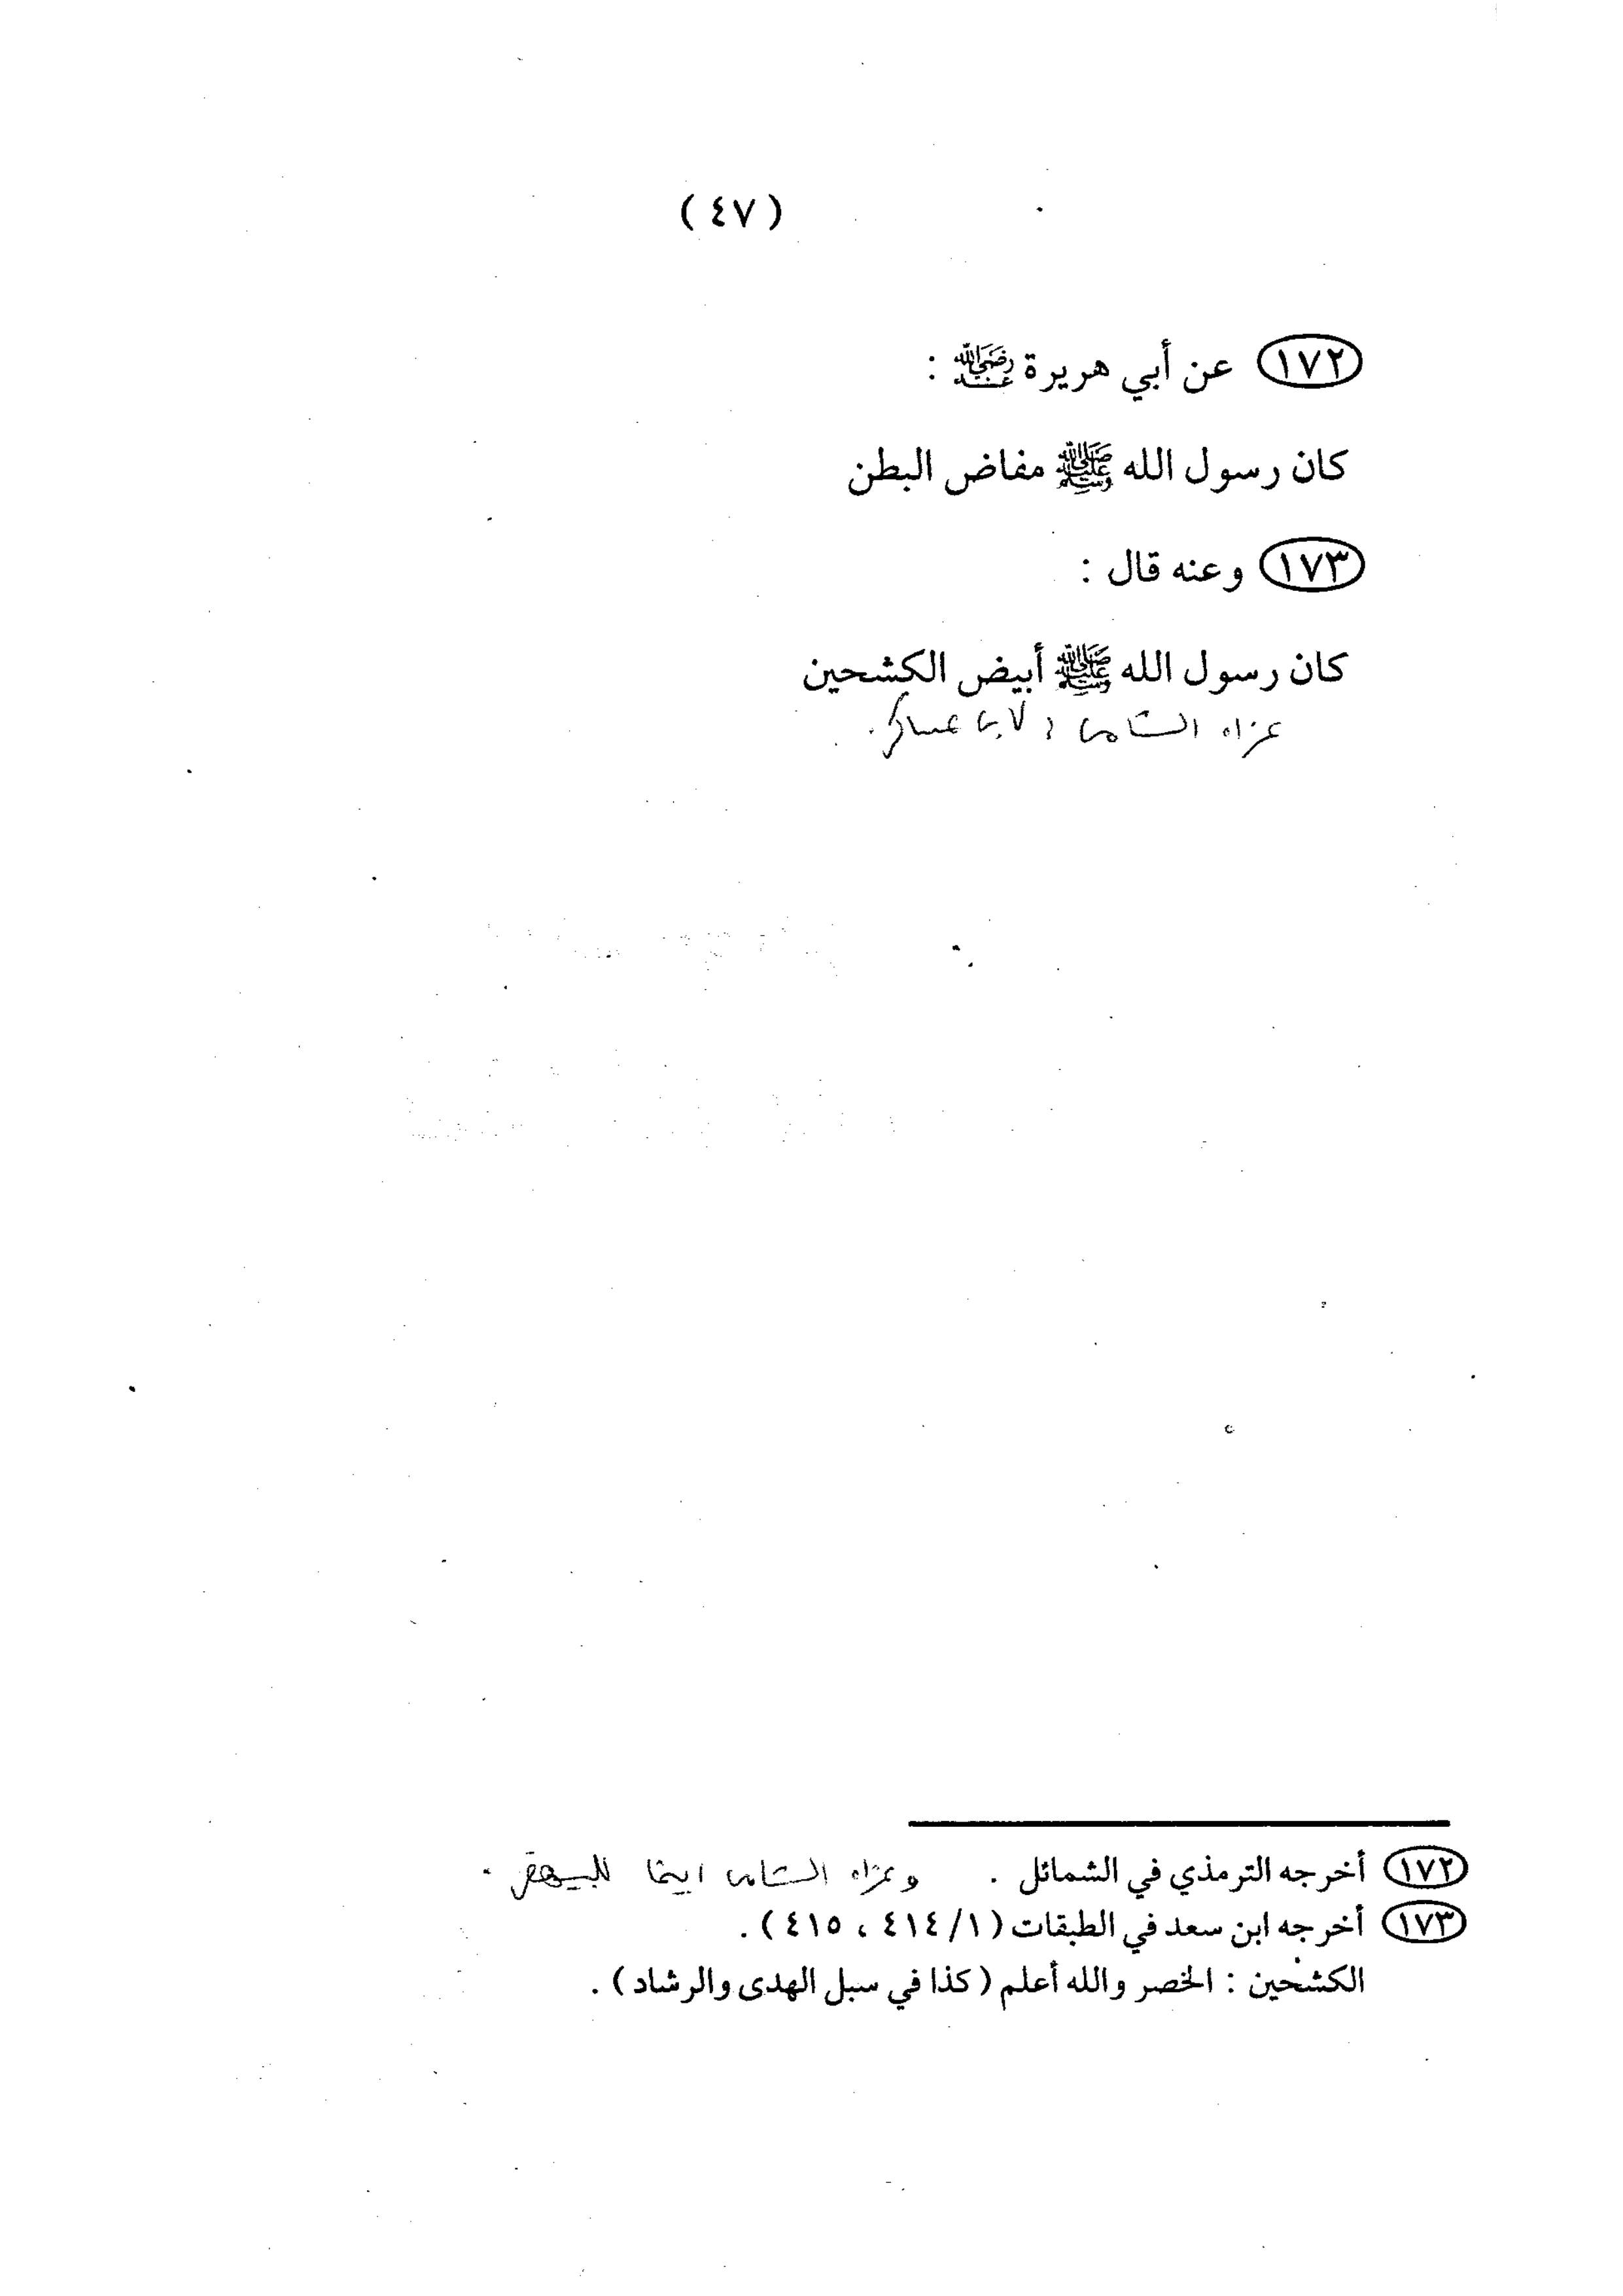 ( ٤٧ )
١٧٢ عن أبي هريرة رضي الله عنه :
كان رسول الله ﷺ مفاض البطن
١٧٣ وعنه قال :
كان رسول الله ﷺ أبيض الكشحين
عزاه الشامي لابن عساكر .
١٧٢ أخرجه الترمذي في الشمائل . وعزاه الشامي ايضا للبيهقي .
١٧٣ أخرجه ابن سعد في الطبقات ( ١/ ٤١٤ ، ٤١٥ ) .
الكشحين : الخصر والله أعلم ( كذا في سبل الهدى والرشاد ) .